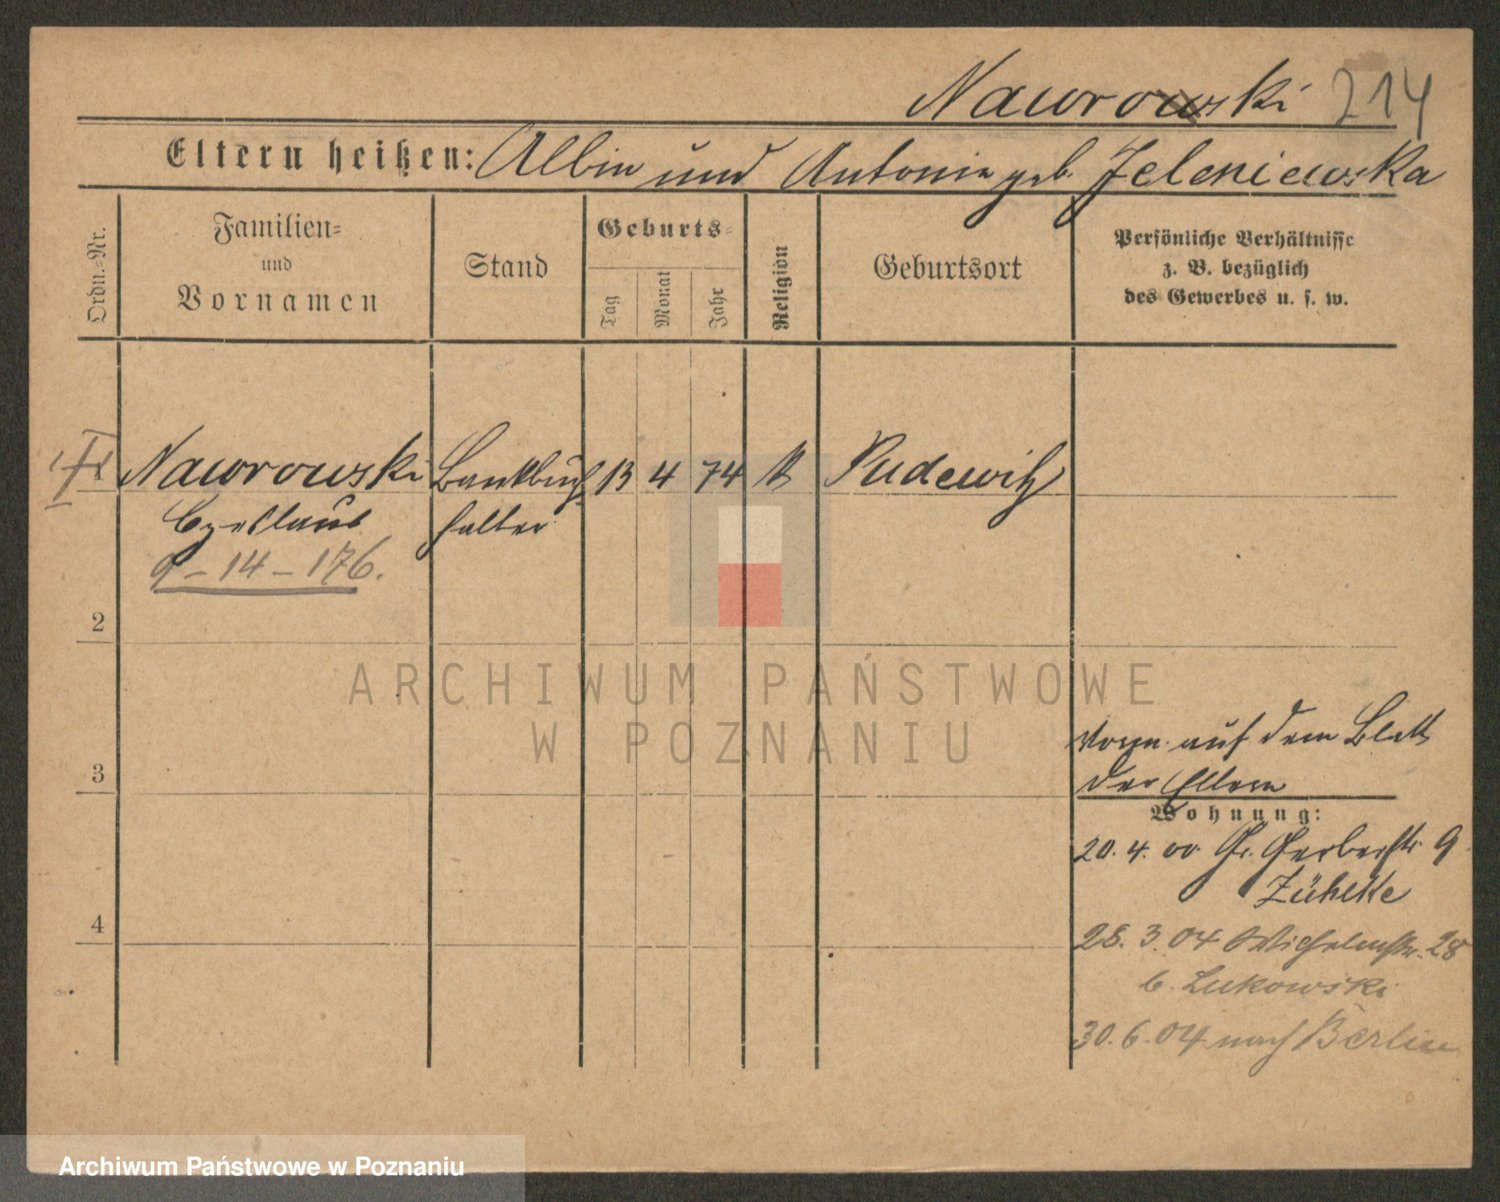 Nawrowski 214
Eltern heißen: Albin und Antonie geb. Jeleniewska
Ordn.-Nr.
Familien-
und
Vornamen
Stand
Geburts-
Tag
Monat
Jahr
Religion
Geburtsort
Persönliche Verhältnisse
z. B. bezüglich
des Gewerbes u. s. w.
Nawrowski Bankbuch- 13 4 74 k Pudewitz
Czeslaus halter
9-14-176.
2
3
4
Vorn auf dem Blatt
der Eltern
Wohnung:
20. 4. 00 Gr. Gerberstr. 9
Zühlke
28. 3. 04 Wilhelmstr. 28
b. Lukowski
30. 6. 04 nach Berlin
ARCHIWUM PAŃSTWOWE
W POZNANIU
Archiwum Państwowe w Poznaniu